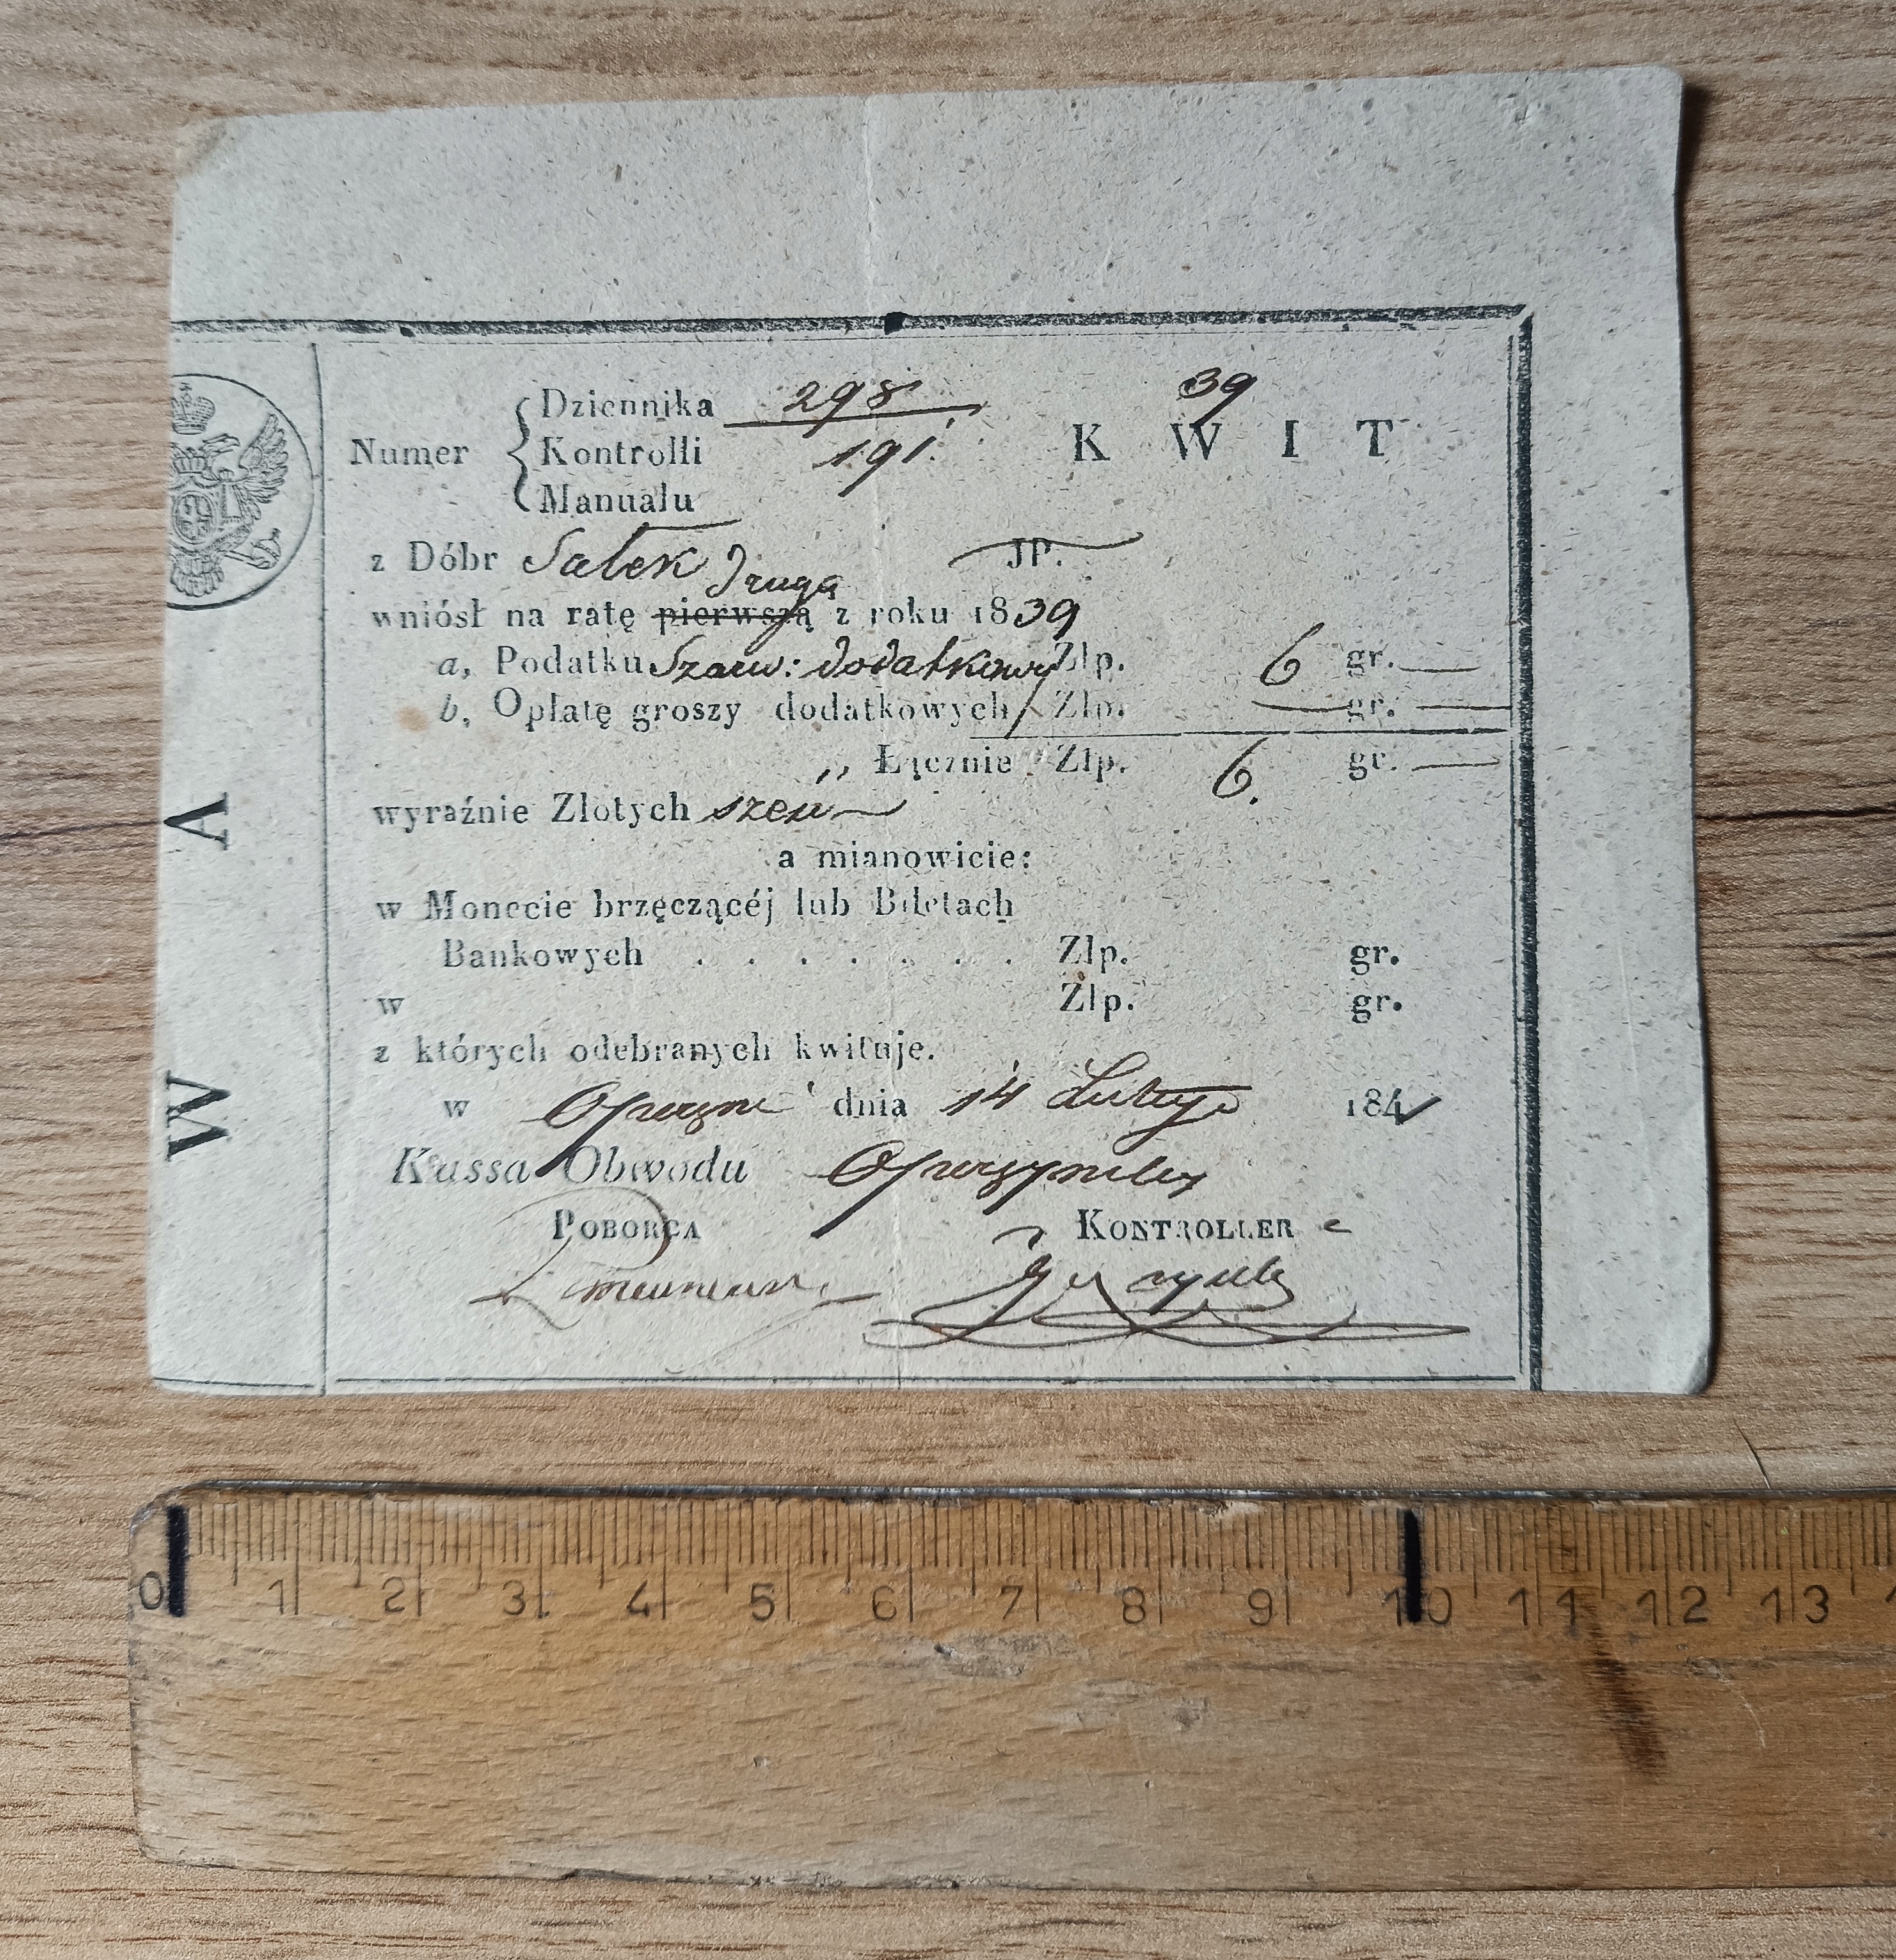 39
Numer { Dziennika 298
Kontrolli 191.
Manualu
K W I T
z Dóbr Sałek JP.
drugą
wniósł na ratę pierwszą z roku 1839
a, Podatku Szarw: dodatkowy Złp. 6 gr. —
b, Opłatę groszy dodatkowych Złp. — gr. —
„ Łącznie Złp. 6. gr. —
wyraźnie Złotych sześć
a mianowicie:
w Monecie brzęczącéj lub Biletach
Bankowych . . . . . . . Złp. gr.
w Złp. gr.
z których odebranych kwituje.
w Opocznie dnia 14 Lutego 184
Kassa Obwodu Opoczyńskiego
POBORCA KONTROLLER
W A
0 1 2 3 4 5 6 7 8 9 10 11 12 13